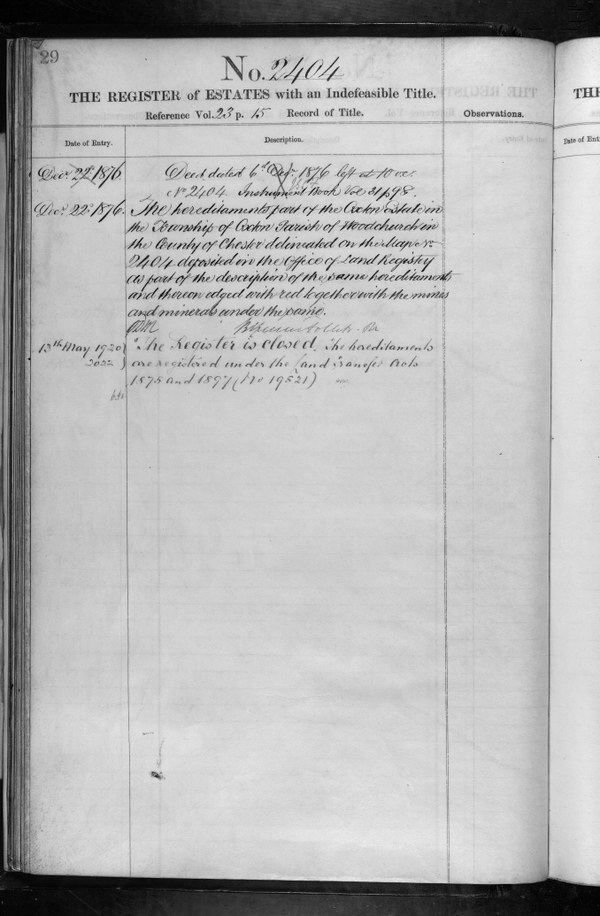 29
No. 2404
THE REGISTER of ESTATES with an Indefeasible Title.
Reference Vol. 23 p. 15 Record of Title.
Observations.
Date of Entry.
Description.
Decr. 22d 1876
Deed dated 6th 1876 left at 10 oc.
No 2404 Instrument Book Vol 31 p 98.
Decr. 22d 1876.
The hereditaments part of the Oxton Estate in
the Township of Oxton Parish of Woodchurch in
the County of Chester delineated on the Map No
2404 deposited in the Office of Land Registry
as part of the description of the same hereditaments
and thereon edged with red together with the mines
and minerals under the same.
13th May 1920
The Register is closed. The hereditaments
are registered under the Land Transfer Acts
1875 and 1897 (No 19521)
THE
Date of Ent